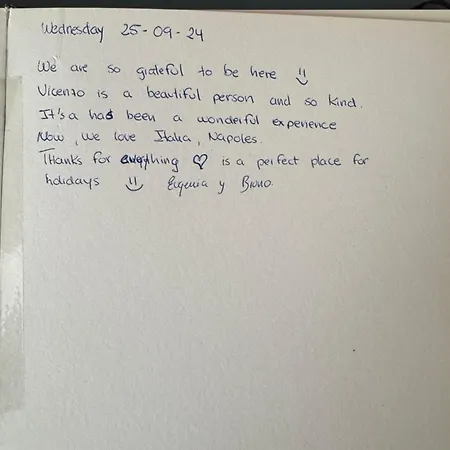 Wednesday 25-09-24
We are so grateful to be here
Vicenzo is a beautiful person and so kind.
It's a has been a wonderful experience
Now, we love Italia, Napoles.
Thanks for everything ♡ is a perfect place for
holidays Eugenia y Bruno.